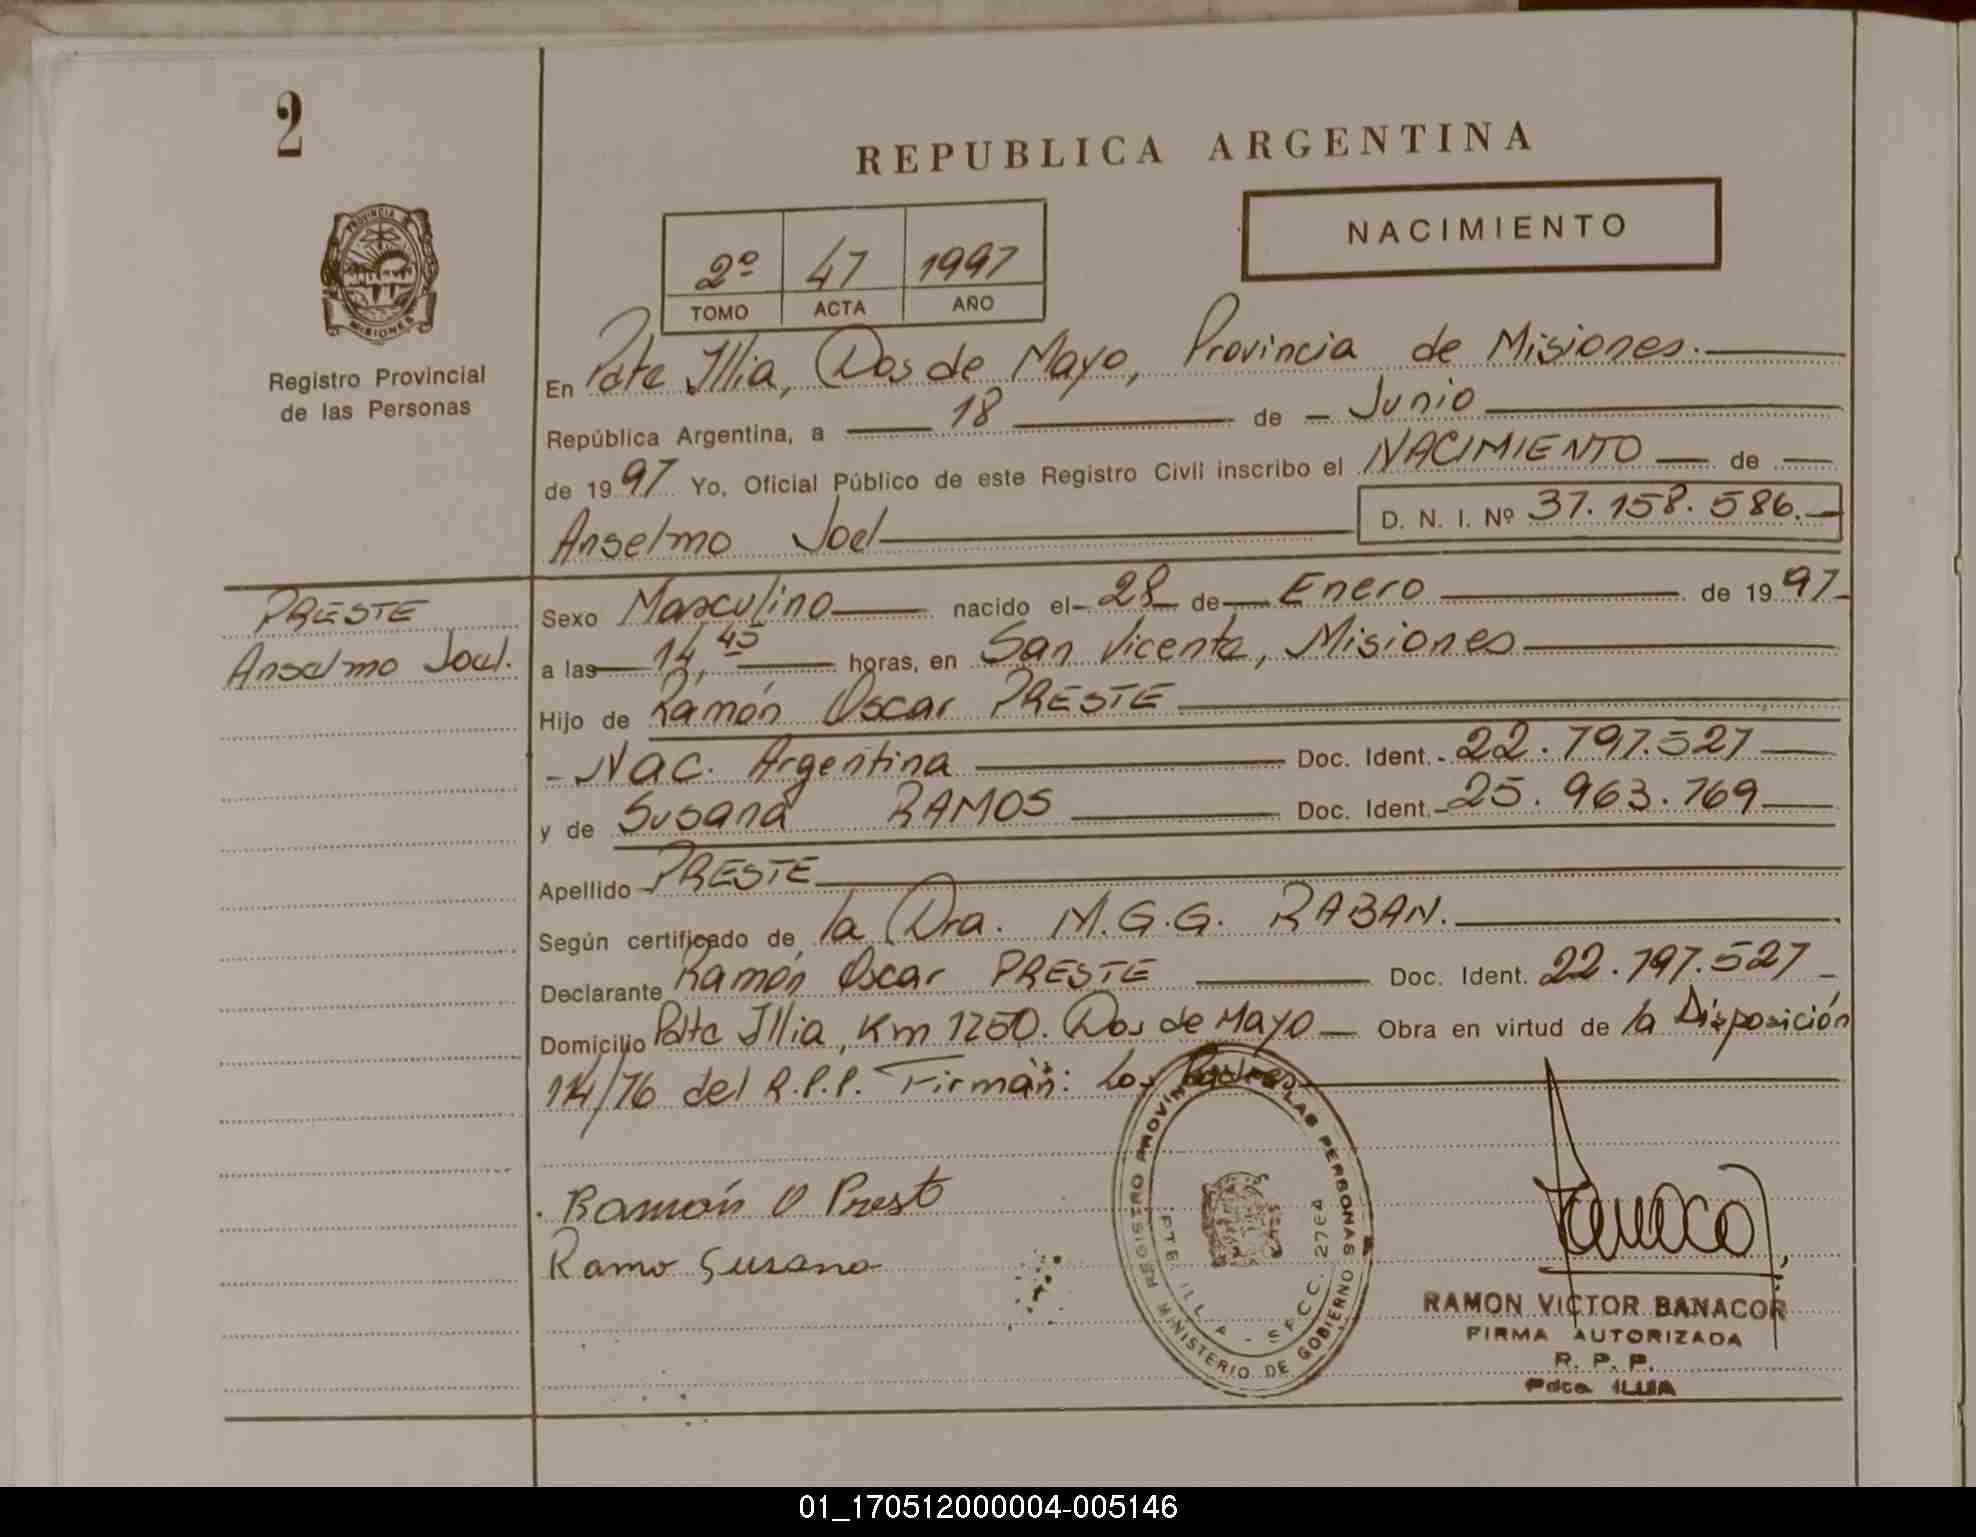 2
REPUBLICA ARGENTINA
NACIMIENTO
2º 47 1997
TOMO ACTA AÑO
PROVINCIA
MISIONES
Registro Provincial
de las Personas
En Pdte Illia, Dos de Mayo, Provincia de Misiones.
República Argentina, a 18 de Junio
de 1997 Yo, Oficial Público de este Registro Civil inscribo el NACIMIENTO de
Anselmo Joel D. N. I. Nº 37.158.586.
PRESTE
Anselmo Joel.
Sexo Masculino nacido el 28 de Enero de 1997
a las 14,45 horas, en San Vicente, Misiones
Hijo de Ramón Oscar PRESTE
Nac. Argentina Doc. Ident. 22.797.527
y de Susana RAMOS Doc. Ident. 25.963.769
Apellido PRESTE
Según certificado de la Dra. M.G.G. RABAN.
Declarante Ramón Oscar PRESTE Doc. Ident. 22.797.527
Domicilio Pdte Illia, Km 1250. Dos de Mayo Obra en virtud de la Disposición
114/76 del R.P.P. Firmán: Los Padres
Ramón O Prest
Ramo Susana
REGISTRO PROVIN LAS PERSONAS
MINISTERIO DE GOBIERNO
PTE. ILLIA - SFCC. 2764
RAMON VICTOR BANACOR
FIRMA AUTORIZADA
R. P. P.
Pdte ILLIA
01_170512000004-005146